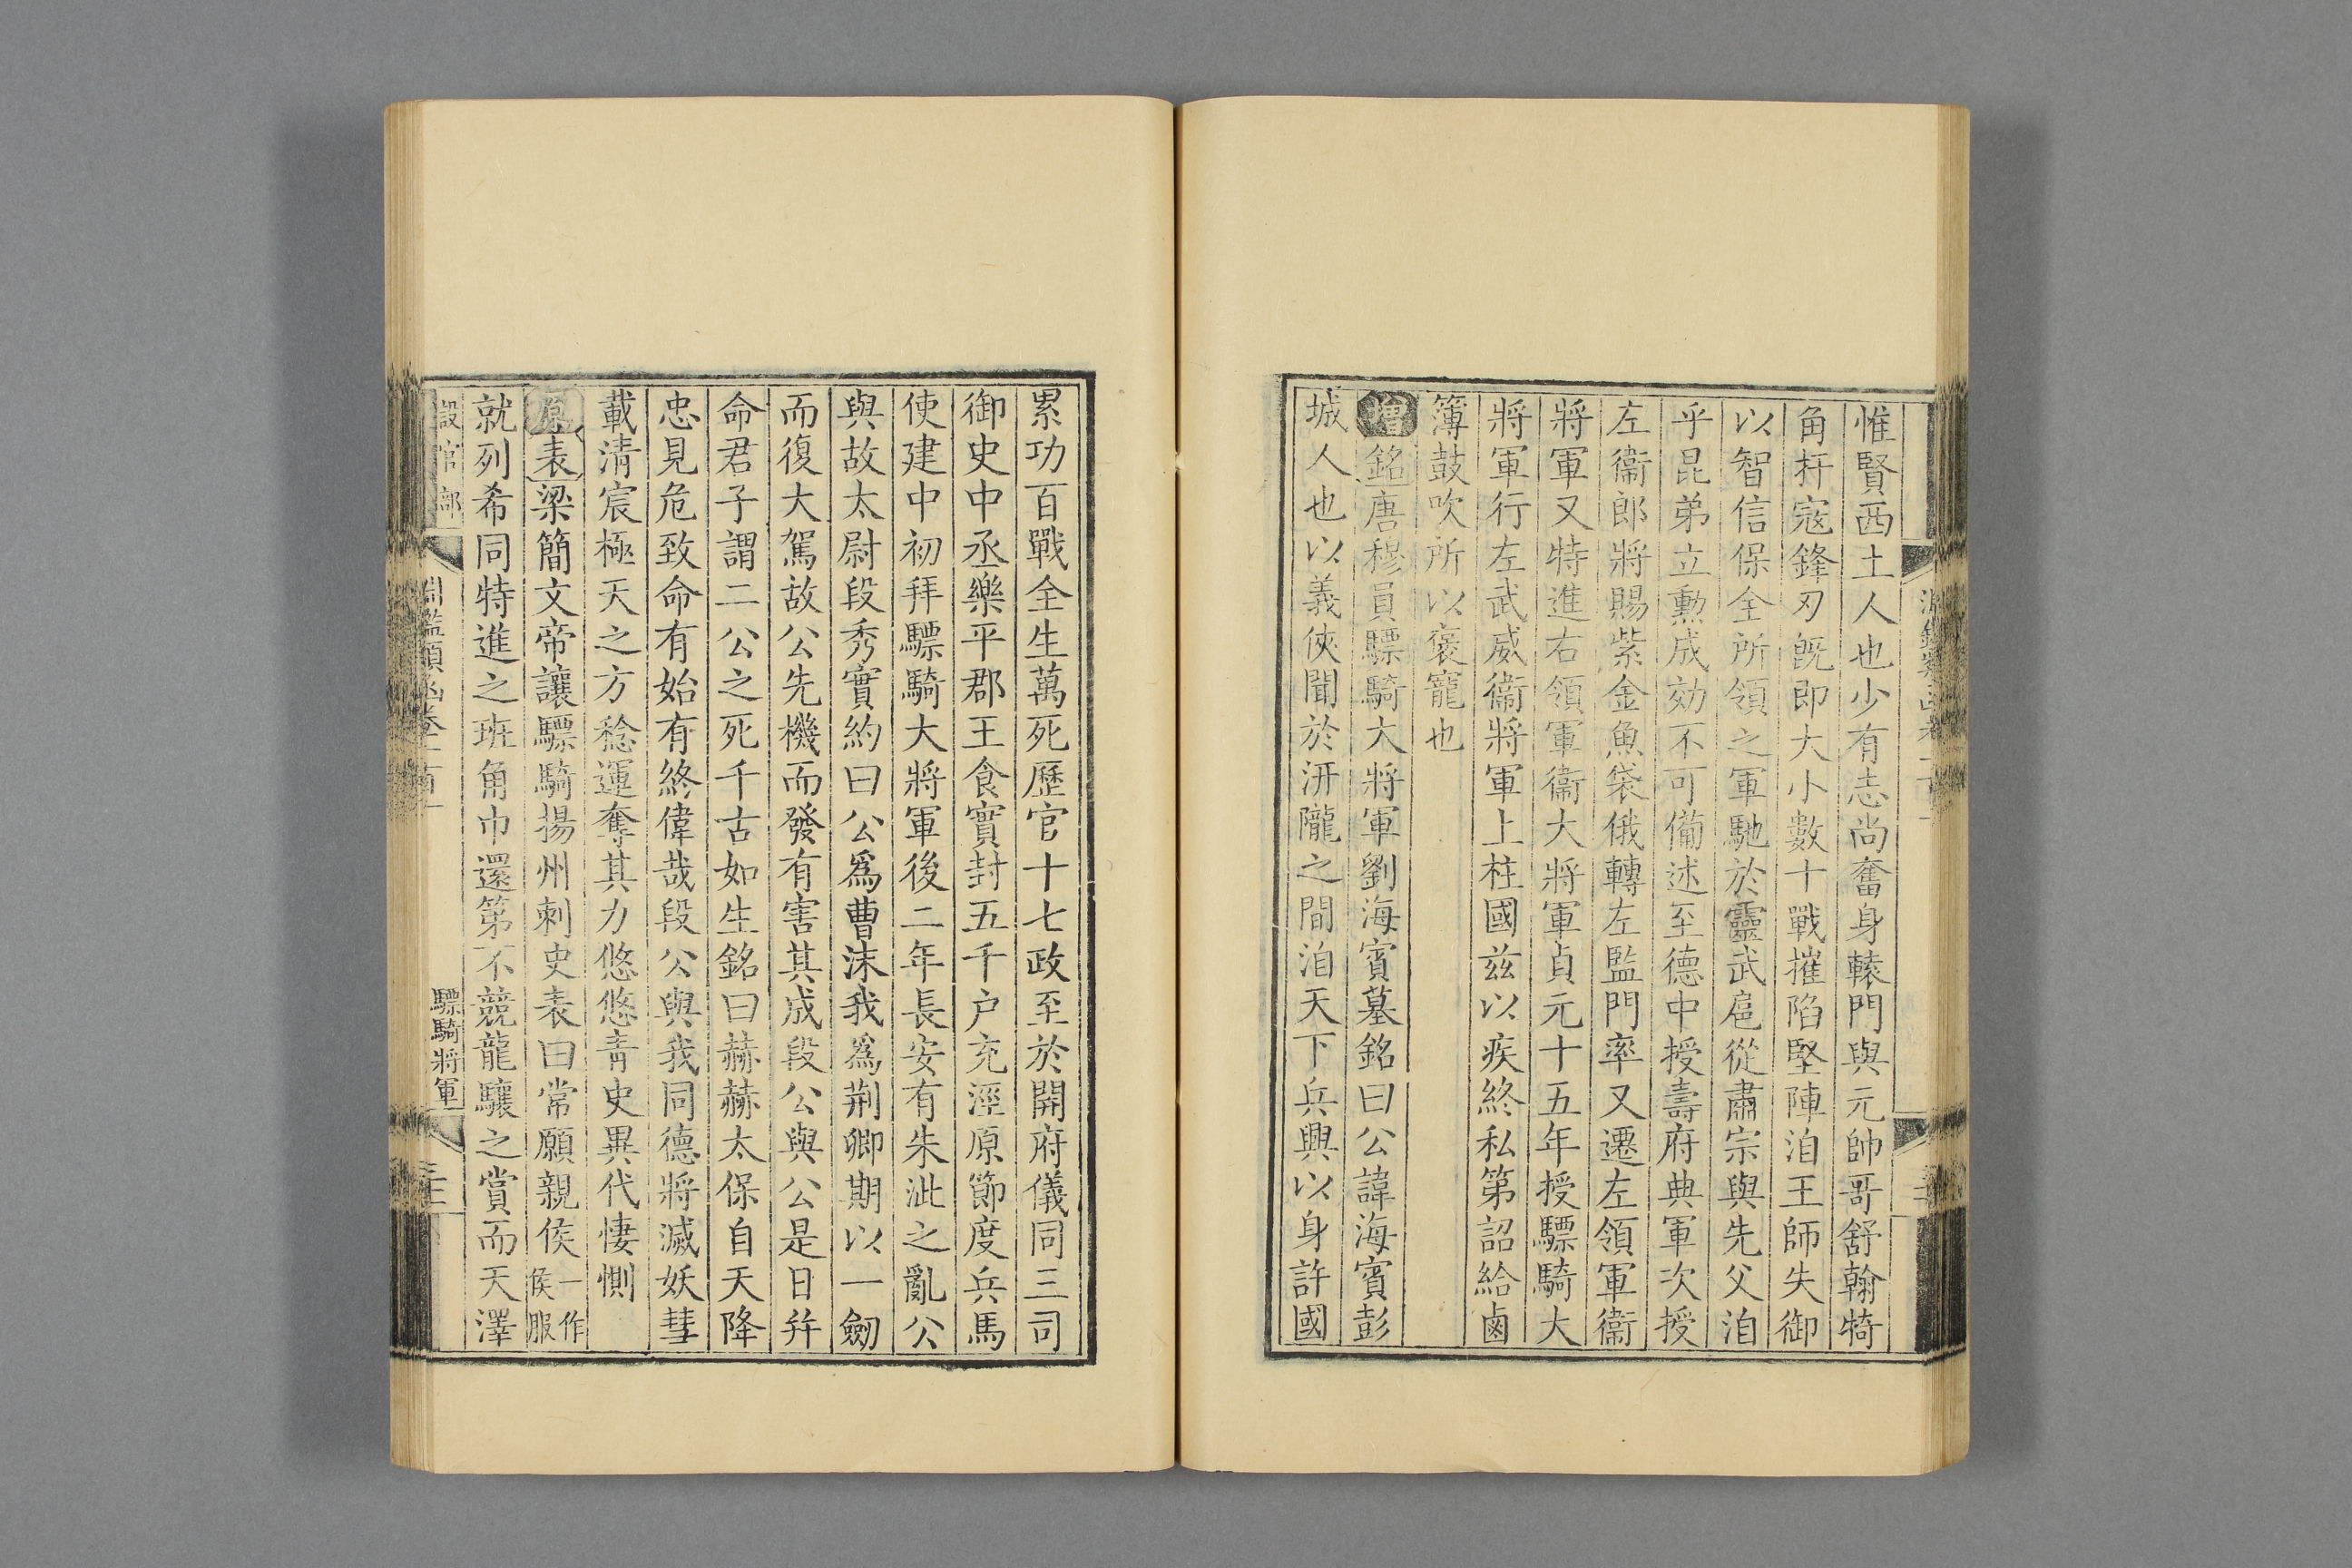 惟賢西土人也少有志尚奮身轅門與元帥哥舒翰犄
角扞寇鋒刃既即大小數十戰摧陷堅陣洎王師失御
以智信保全所領之軍馳於靈武扈從肅宗與先父洎
乎昆弟立勲成効不可備述至德中授壽府典軍次授
左衞郎將賜紫金魚袋俄轉左監門率又遷左領軍衞
將軍又特進右領軍衞大將軍貞元十五年授驃騎大
將軍行左武威衞將軍上柱國兹以疾終私第詔給鹵
簿鼓吹所以褒寵也
增銘唐穆員驃騎大將軍劉海賓墓銘曰公諱海賓彭
城人也以義俠聞於汧隴之間洎天下兵興以身許國
累功百戰全生萬死歷官十七政至於開府儀同三司
御史中丞樂平郡王食實封五千户充涇原節度兵馬
使建中初拜驃騎大將軍後二年長安有朱泚之亂公
與故太尉段秀實約曰公爲曹沫我爲荆卿期以一劒
而復大駕故公先機而發有害其成段公與公是日并
命君子謂二公之死千古如生銘曰赫赫太保自天降
忠見危致命有始有終偉哉段公與我同德將滅妖彗
載清宸極天之方稔運奪其力悠悠青史異代悽惻
原表梁簡文帝讓驃騎揚州刺史表曰常願親侯一作侯服
就列希同特進之班角巾還第不競龍驤之賞而天澤
設官部 淵鑑類函卷一百一 驃騎將軍 三